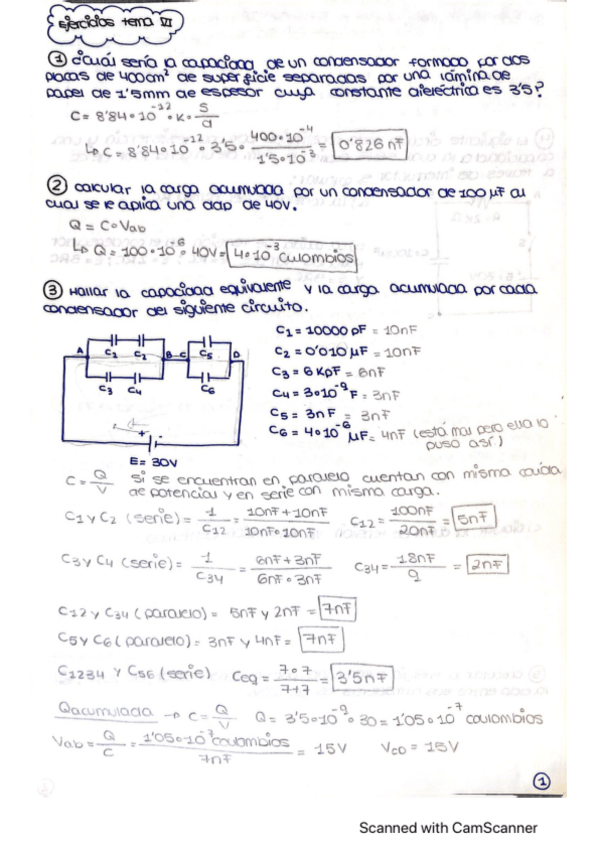 Ejercicios tema VI
① ¿Cuál sería la capacidad de un condensador formado por dos
placas de 400cm² de superficie separadas por una lámina de
papel de 1'5mm de espesor cuya constante dieléctrica es 3'5?
C = 8'84·10⁻¹² · K · S/d
↳ C = 8'84·10⁻¹² · 3'5 · 400·10⁻⁴/1'5·10⁻³ = 0'826 nF
② Calcular la carga acumulada por un condensador de 100 μF al
cual se le aplica una ddp de 40V.
Q = C·Vab
↳ Q = 100·10⁻⁶ · 40V = 4·10⁻³ culombios
③ Hallar la capacidad equivalente y la carga acumulada por cada
condensador del siguiente circuito.
C1 = 10000 pF = 10nF
C2 = 0'010 μF = 10nF
C3 = 6 KpF = 6nF
C4 = 3·10⁻⁹ F = 3nF
C5 = 3nF = 3nF
C6 = 4·10⁻⁶ μF = 4nF (está mal pero ella lo
puso así)
A C1 C2 B C C5 D
C3 C4 C6
+ -
E = 30V
C = Q/V si se encuentran en paralelo cuentan con misma caída
de potencial y en serie con misma carga.
C1 y C2 (serie) = 1/C12 = 10nF + 10nF/10nF·10nF C12 = 100nF/20nF = 5nF
C3 y C4 (serie) = 1/C34 = 6nF + 3nF/6nF · 3nF C34 = 18nF/9 = 2nF
C12 y C34 (paralelo) = 5nF y 2nF = 7nF
C5 y C6 (paralelo) = 3nF y 4nF = 7nF
C1234 y C56 (serie) Ceq = 7·7/7+7 = 3'5nF
Qacumulada → C = Q/V Q = 3'5·10⁻⁹ · 30 = 1'05·10⁻⁷ coulombios
Vab = Q/C = 1'05·10⁻⁷ coulombios/7nF = 15V VCD = 15V
①
Scanned with CamScanner